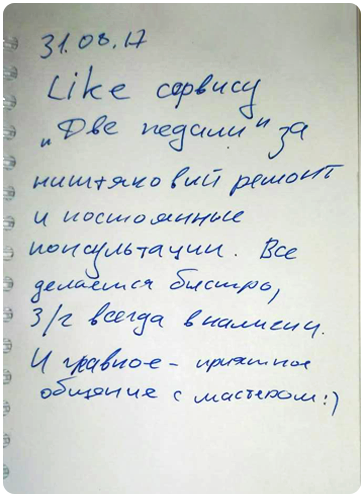 31.08.17
Like сервису
„Две педали" за
ништяковый ремонт
и постоянные
консультации. Все
делается быстро,
З/г всегда в наличии.
И главное - приятное
общение с мастером:)